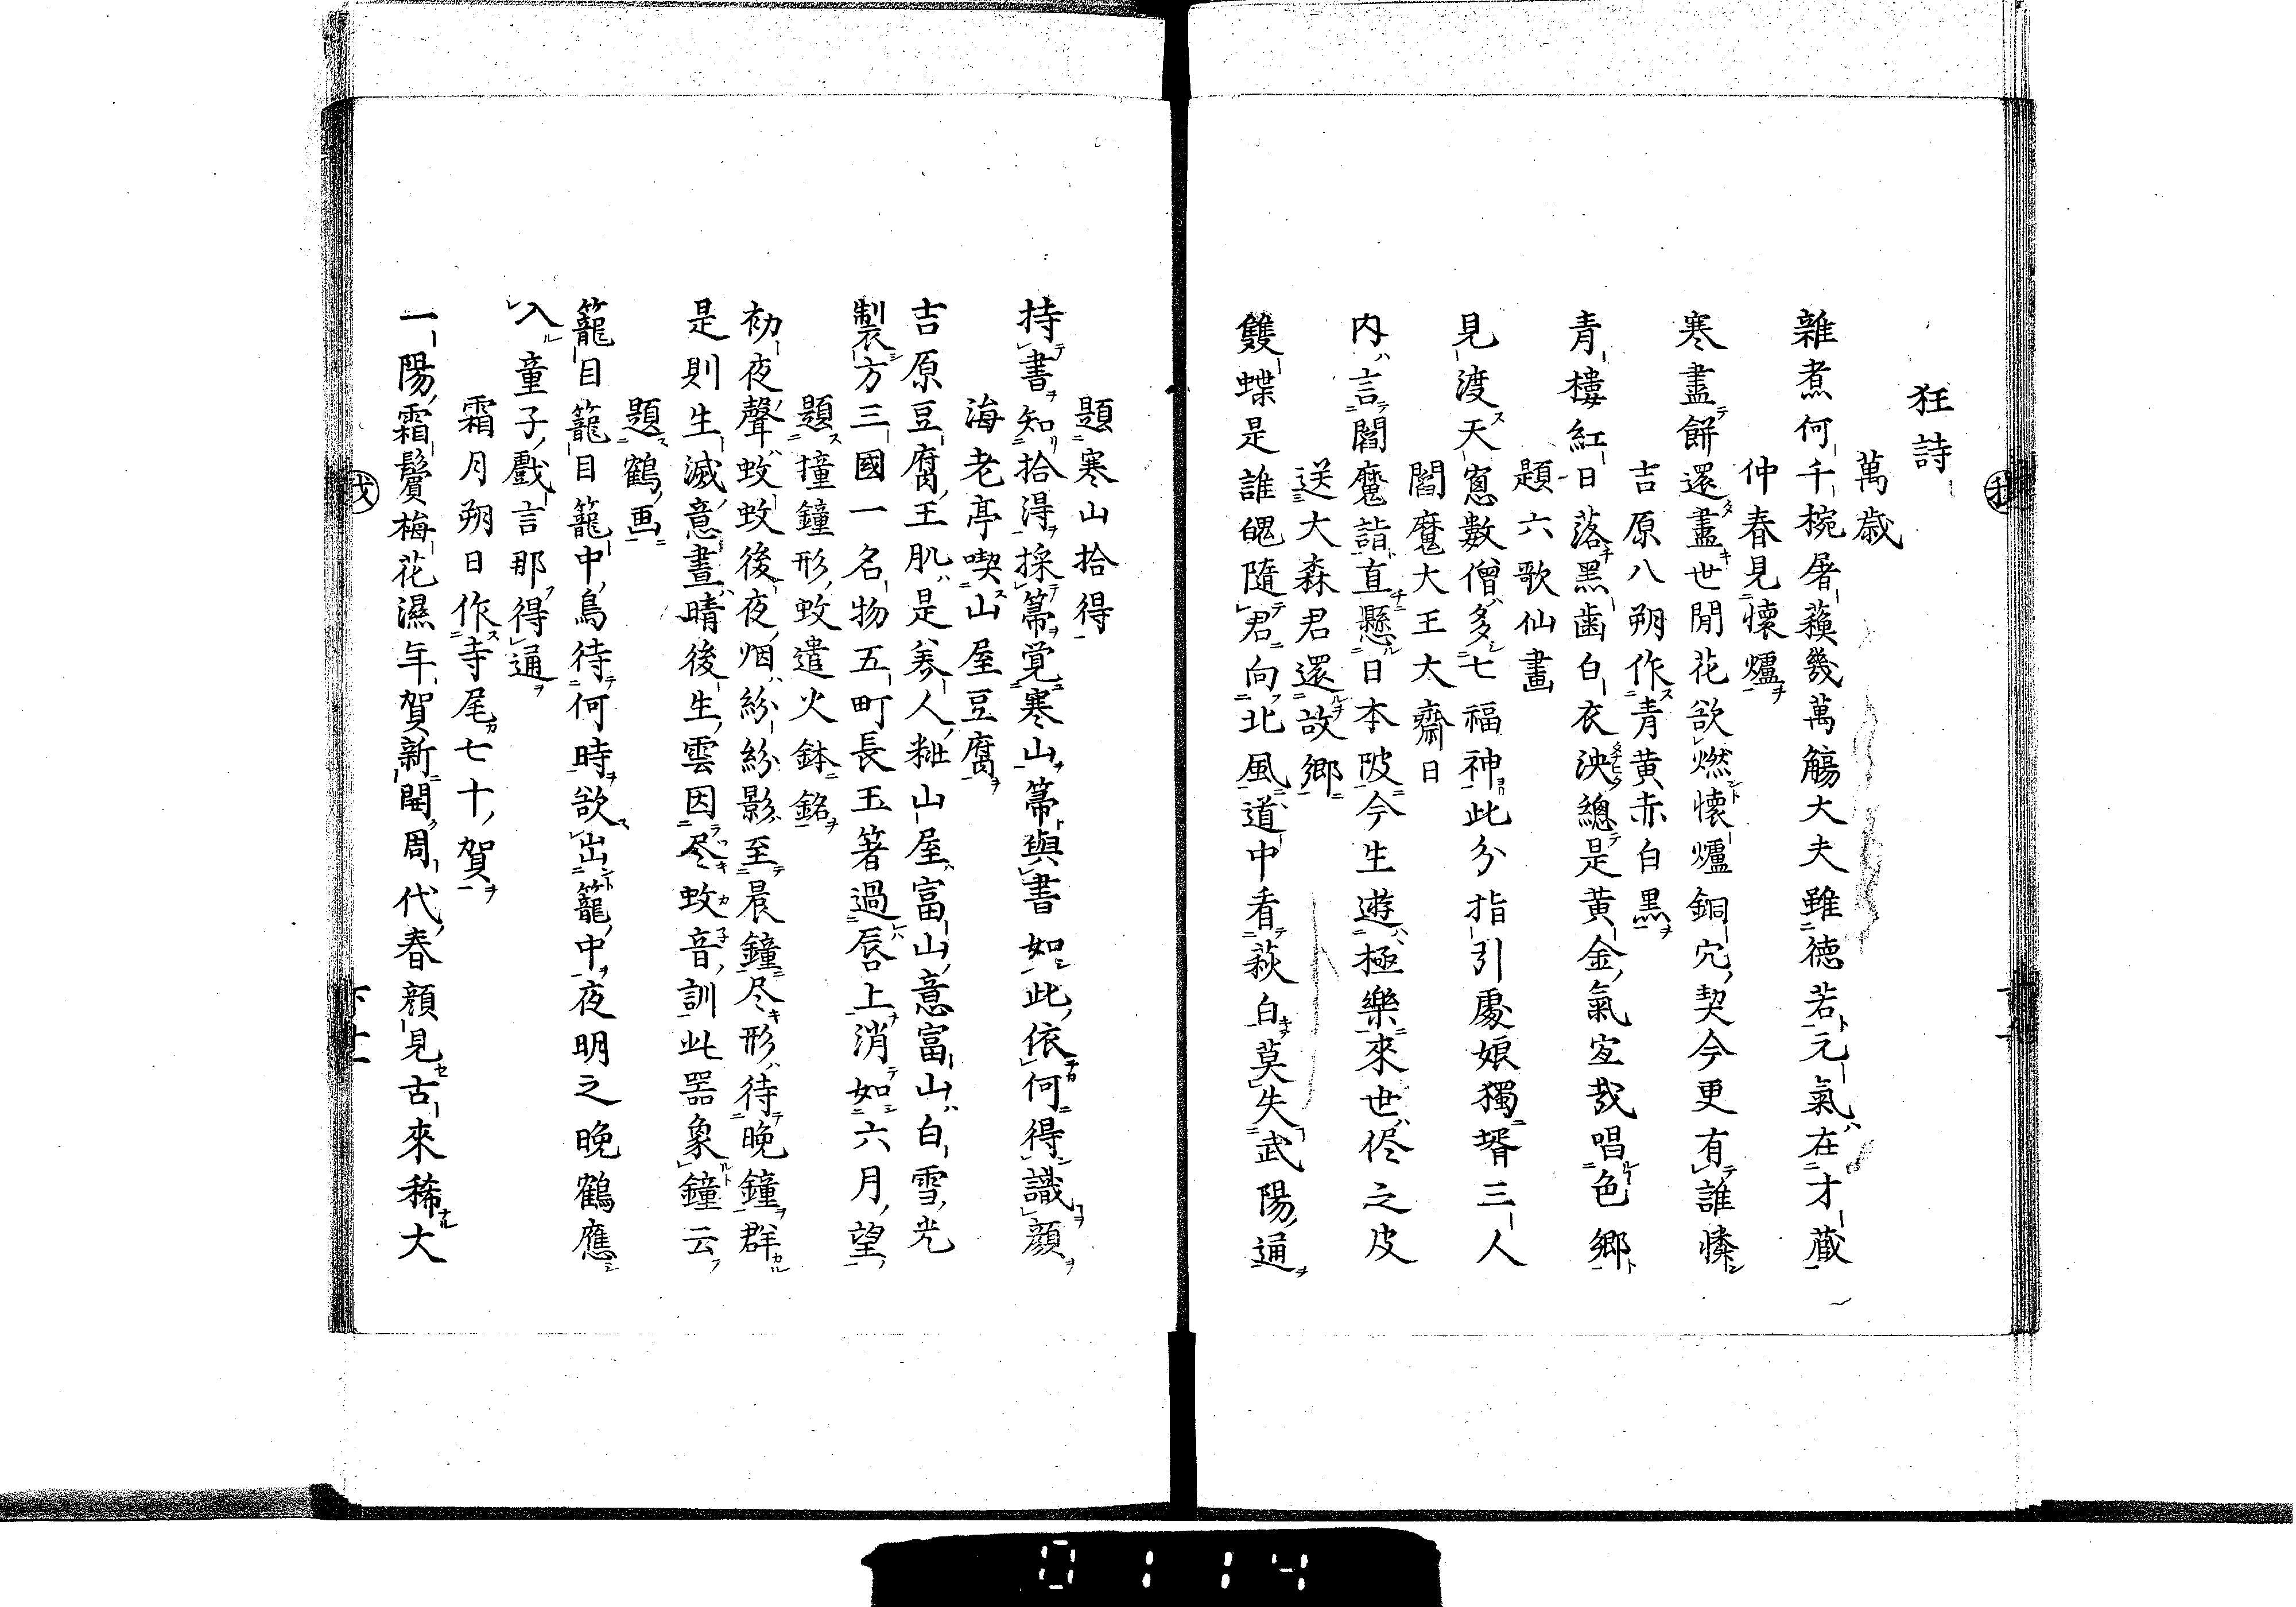 狂詩
萬歳
雜煮何千椀屠蘓幾萬觴大夫雖德若元氣在才蔵
仲春見懐爐
寒盡餅還盡世間花欲燃懐爐銅穴契今更有誰憐
吉原八朔作青黄赤白黒
青樓紅日落黒歯白衣泱總是黄金氣宜哉唱色郷
題六歌仙畫
見渡天窓數僧多七福神此分指引處娘獨壻三人
閻魔大王大齋日
内言閻魔詣直懸日本陂今生遊極樂來世侭之皮
送大森君還故郷
雙蝶是誰魄隨君向北風道中看萩白莫失武陽通
題寒山拾得
持書知拾得採箒覚寒山箒與書如此依何得識顔
海老亭喫山屋豆腐
吉原豆腐王肌是美人粧山屋富山意富山白雪光
製方三國一名物五町長玉箸過唇上消如六月望
題撞鐘形蚊遣火鉢銘
初夜聲蚊蚊後夜烟紛紛影至晨鐘尽形待晩鐘群
是則生滅意晝晴後生雲因尽蚊音訓此器象鐘云
題鶴画
籠目籠目籠中鳥待何時欲出籠中夜明之晩鶴應
入童子戲言那得通
霜月朔日作寺尾七十賀
一陽霜鬢梅花濕年賀新開周代春顔見古來稀大
0114